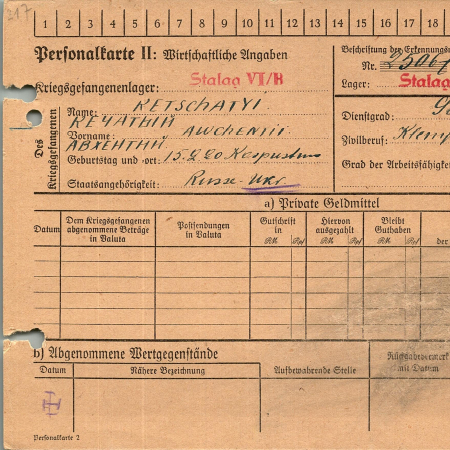 217
1 2 3 4 5 6 7 8 9 10 11 12 13 14 15 16 17 18
Personalkarte II: Wirtschaftliche Angaben
Beschriftung der Erkennungs
Nr.
Kriegsgefangenenlager: Stalag VI/B
Lager: Stalag
Des Kriegsgefangenen
Name: KETSCHATYI
КЕЧАТЫЙ
Vorname: AWCHENTII
АВХЕНТІЙ
Dienstgrad:
Zivilberuf:
Geburtstag und -ort: 15.2.20
Grad der Arbeitsfähigkeit
Staatsangehörigkeit: Russe - Ukr.
a) Private Geldmittel
Datum
Dem Kriegsgefangenen abgenommene Beträge in Valuta
Postsendungen in Valuta
Gutschrift in
RM Rpf
Hiervon ausgezahlt
RM Rpf
Bleibt Guthaben
RM Rpf
der
b) Abgenommene Wertgegenstände
Datum
Nähere Bezeichnung
Aufbewahrende Stelle
Rückgabevermerk mit Datum
Personalkarte 2